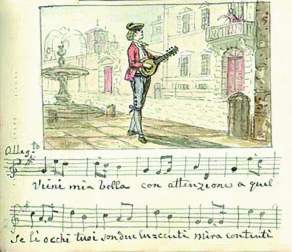 Allegto
Vieni mia bella con attenzione a quel
Se li occhi tuoi son due lucenti mira contenti